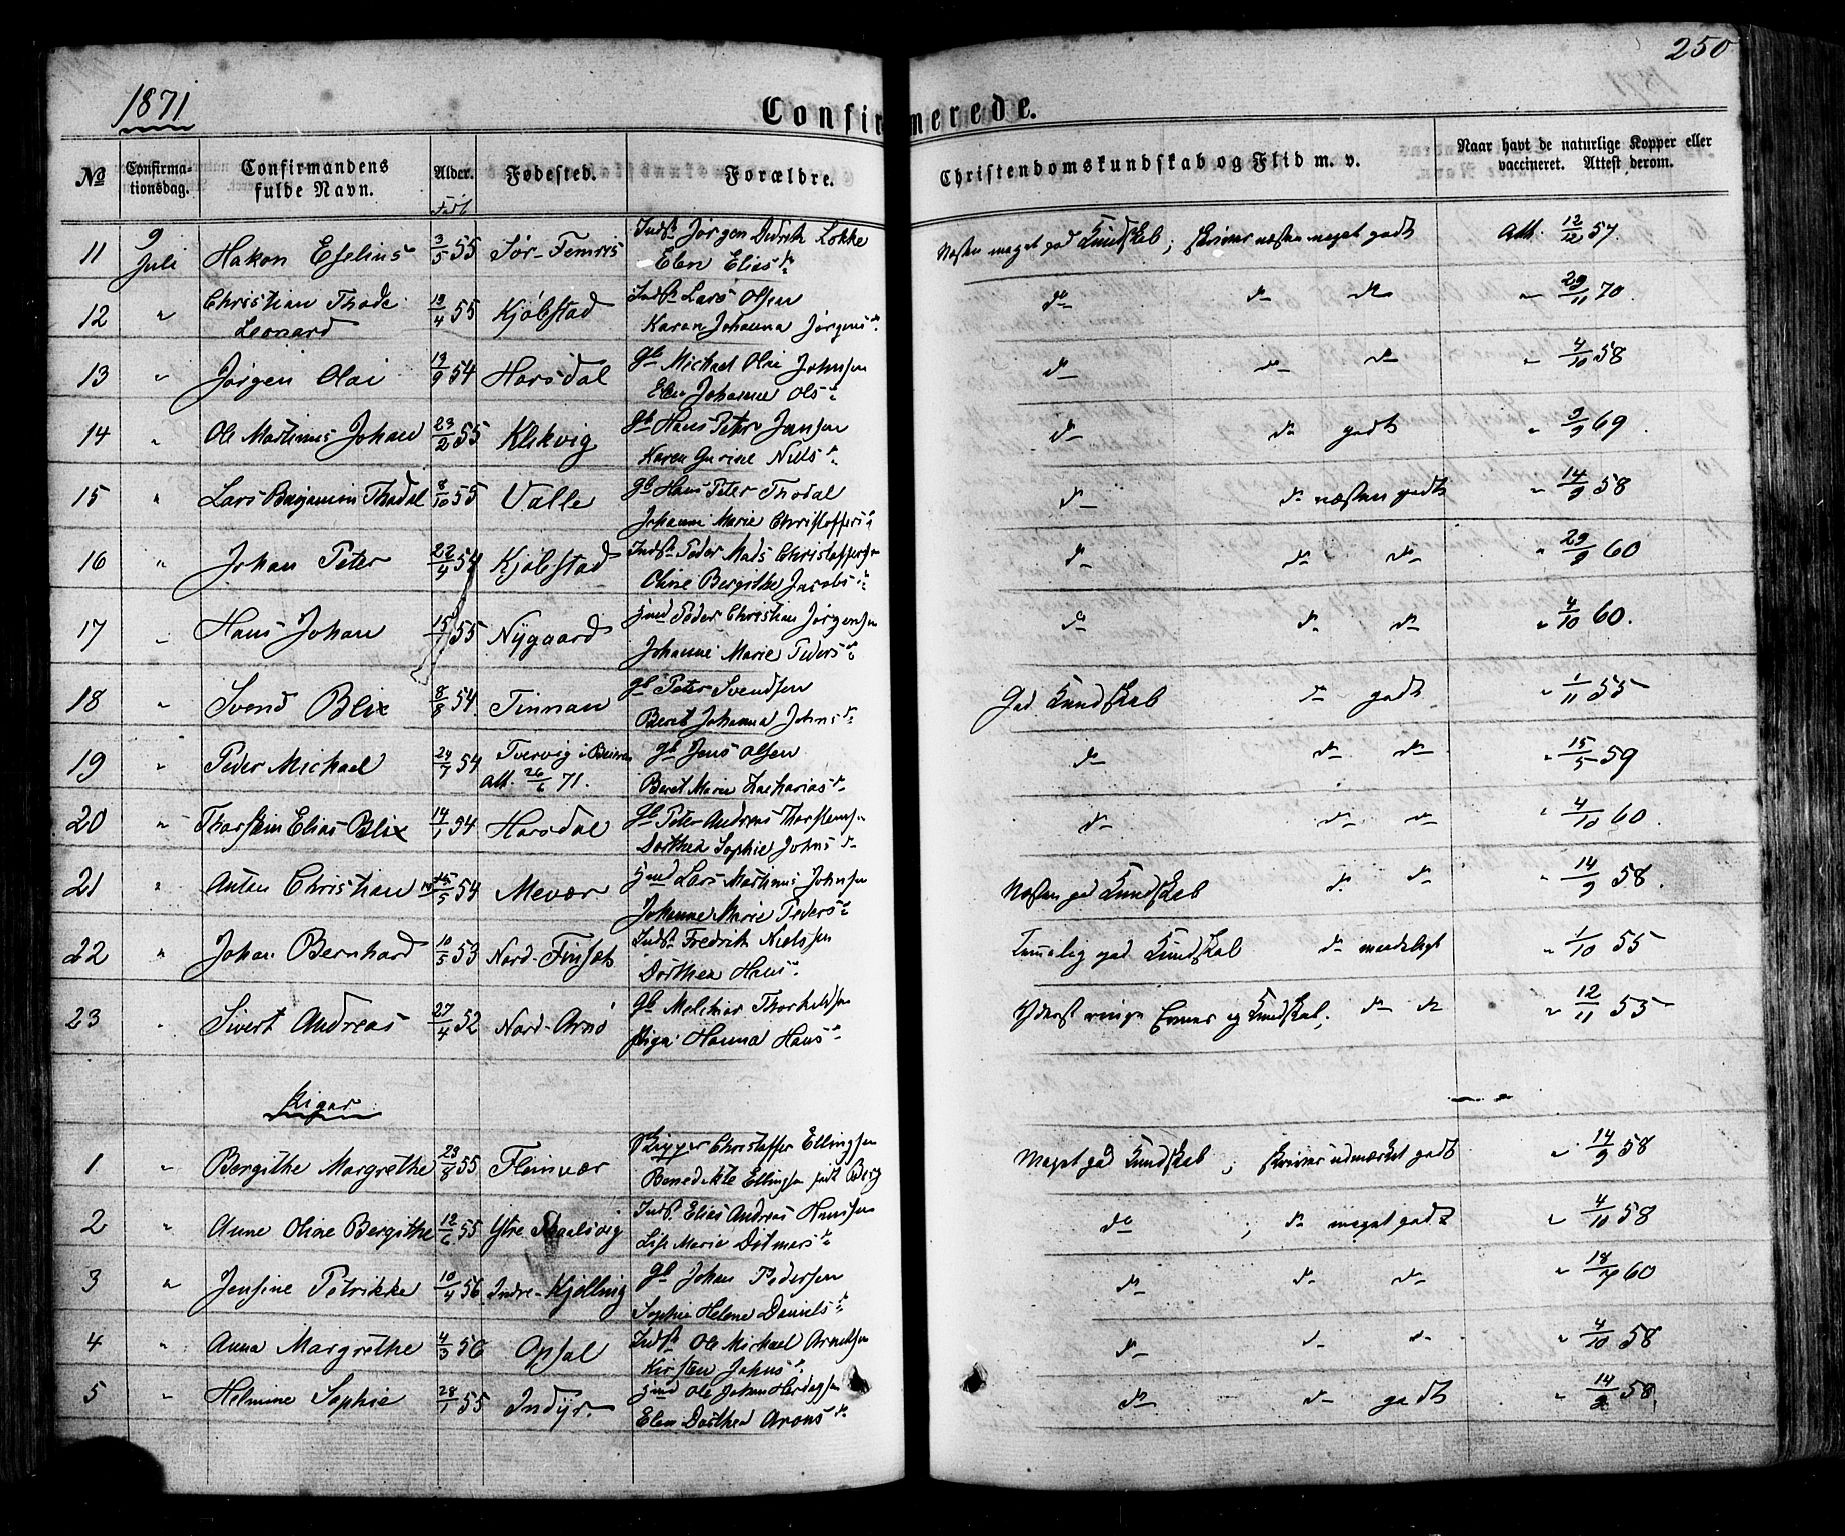 250
1871
Confirmerede.
No
Confirmationsdag.
Confirmandens fulde Navn.
Alder.
Født
Fødested.
Forældre.
Christendomskundskab og Flid m. v.
Naar havt de naturlige Kopper eller vaccineret. Attest derom.
11 9 Juli Hakon Eselius 3/5 55 Sør-Femris Inds. Jørgen Didrik Løkke
Elen Elias d. Næsten meget god Kundskab; skriver næsten meget godt Att. 12/12 57.
12 " Christian Thode Leonard 13/4 55 Kjølstad Inds. Lars Olsen
Karen Johanna Jørgens d. do do do " 29/11 70.
13 " Jørgen Olai 13/9 54 Horsdal gb Michael Olai Johnsen
Elen Johanna Ols d. do do do " 4/10 58
14 " Ole Martinus Johan 23/2 55 Klekvig gb Hans Peter Jensen
Karen Gurine Niels d. do do godt " 2/9 69.
15 " Lars Benjamin Thodal 8/10 55 Valle gb Hans Peter Thodal
Johanna Marie Christoffers d. do do næsten godt " 14/9 58
16 " Johan Peter 22/9 54 Kjølstad Inds. Peder Mads Christoffersen
Oline Bergithe Jacobs d. do do do " 29/9 60
17 " Hans Johan 15/1 55 Nygaard Peder Christian Jørgensen
Johanna Marie Peders d. do do do " 4/10 60.
18 " Svend Blix 8/8 54. Tinnan gb Peter Svendsen
Beret Johanna Johns d. God Kundskab do godt " 1/11 55
19 " Peder Michael 24/7 54 Tvervig i Beieren
Att. 26/6 71. gb Jens Olsen
Beret Marie Zacharias d. do do do " 15/5 59
20 " Thorstein Elias Blix 14/1 54 Horsdal gb Peter Andreas Thorstensen
Dorthea Sophie Johns d. do do do " 4/10 60.
21 " Anton Christian 15/5 54 Mevær Lars Martinus Johnsen
Johanna Marie Peders d. Næsten god Kundskab do do " 14/9 58.
22 " Johan Bernhard 10/5 53 Nord-Finset Inds. Fredrik Nielsen
Dorthea Hans d. Temmelig god Kundskab do maadeligt " 1/10 55
23 " Sivert Andreas 27/4 52 Nord-Arnø gb Melchior Thorkelsen
Pige Hanna Hans d. Yderst ringe Evner og Kundskab; do do " 12/11 55
Piger
1 " Bergithe Margrethe 23/8 55 Fleinvær Christoffer Ellingsen
Benedikte Ellingsen født Berg Meget god Kundskab; skriver udmærket godt " 14/9 58
2 " Anne Oline Bergithe 12/6 55 Ytre Skaalsvig Inds. Elias Andreas Hansen
Lise Marie Ditmars d. do ; do meget godt " 4/10 58
3 " Jensine Petrikke 10/4 56 Indre-Kjelling gb Johan Pedersen
Sophie Helena Daniels d. do do do " 18/7 60
4 " Anna Margrethe 4/3 56 Opsal Inds. Ole Michael Arntsen
Kirsten Johns d. do do do " 4/10 58
5 " Helmine Sophie 28/1 55 Indyr. Ole Johan
Elen Dorthea Arons d. do do godt " 14/9 58.